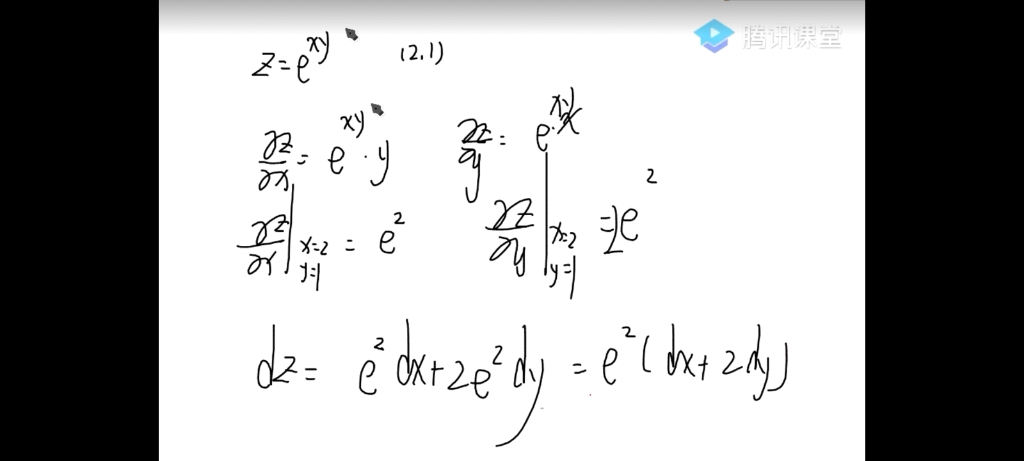 腾讯课堂
z=e^{xy} (2,1)
∂z/∂x = e^{xy}·y ∂z/∂y = e^{xy}·x
∂z/∂x|_{x=2 y=1} = e^2 ∂z/∂y|_{x=2 y=1} = 2e^2
dz = e^2 dx+2e^2 dy = e^2(dx+2dy)